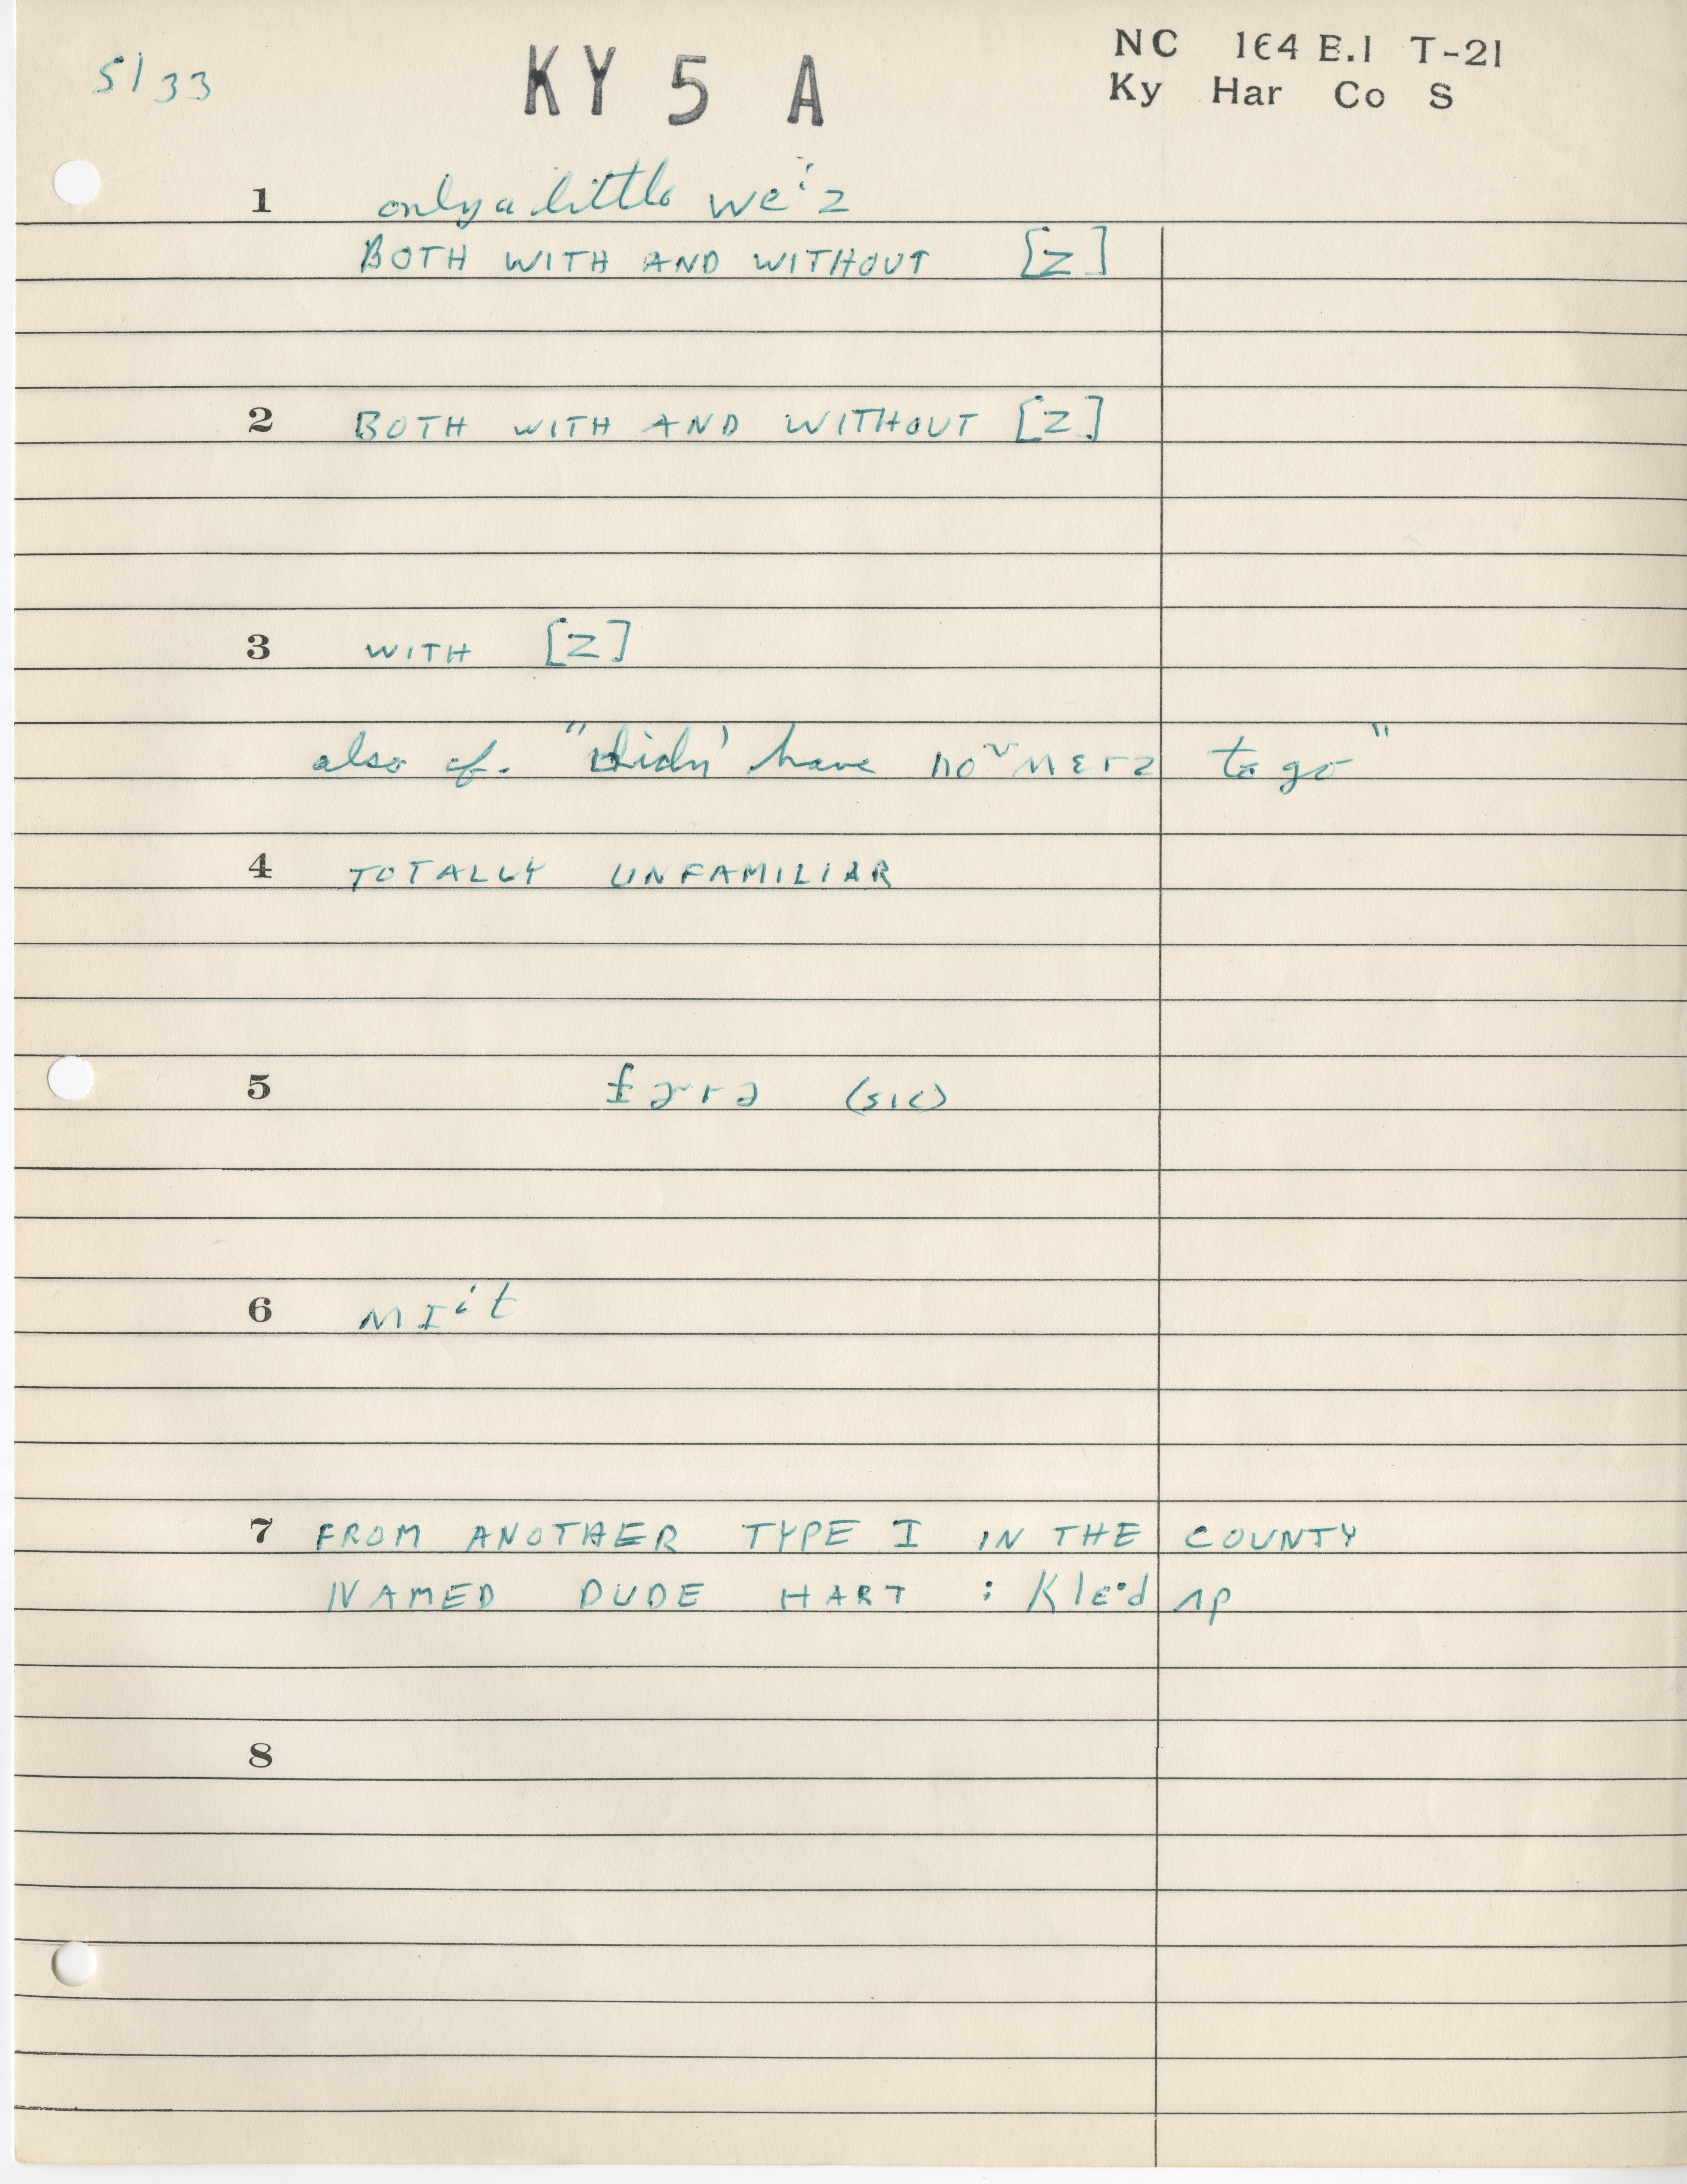 5/33
KY 5 A
NC 164 E.1 T-21
Ky Har Co S
1 only a little weⁱz
BOTH WITH AND WITHOUT [z]
2 BOTH WITH AND WITHOUT [z]
3 WITH [z]
also cf. "didn' have no˞mɛrz to go"
4 TOTALLY UNFAMILIAR
5 (SIC)
6 mɪⁱt
7 FROM ANOTHER TYPE I IN THE COUNTY
NAMED DUDE HART : kle·d ʌp
8